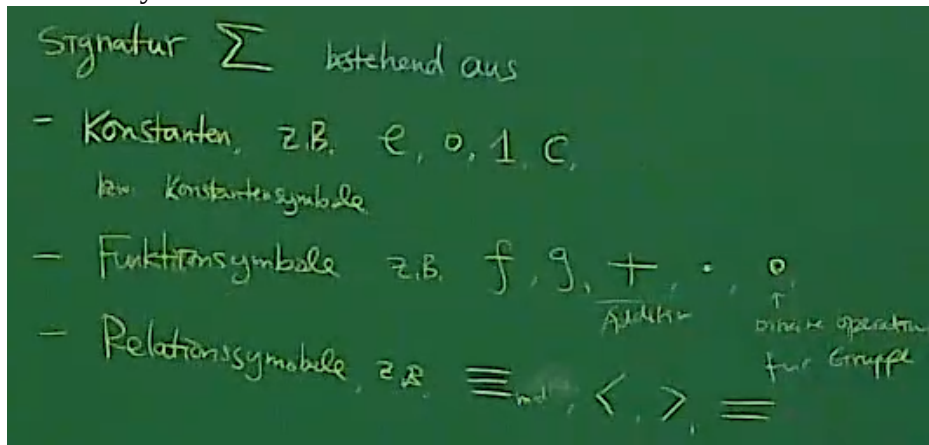 Signatur Σ bestehend aus
- Konstanten, z.B. e, 0, 1, c,
bzw. Konstantensymbole
- Funktionsymbole z.B. f, g, +, ·, ∘
Addition
↑
binäre operation
für Gruppe
- Relationssymobole, z.B. ≡mod, <, >, =